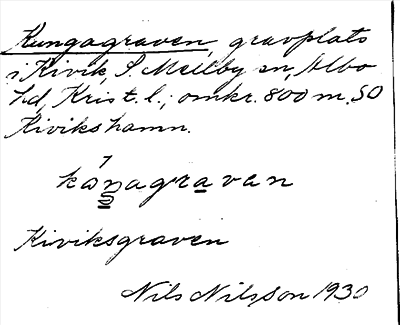 Kungagraven, gravplats
i Kivik, S. Mellby sn, Albo
hd, Krist. l.; omkr. 800 m. SO
Kivikshamn.
Kiviksgraven
Nils Nilsson 1930